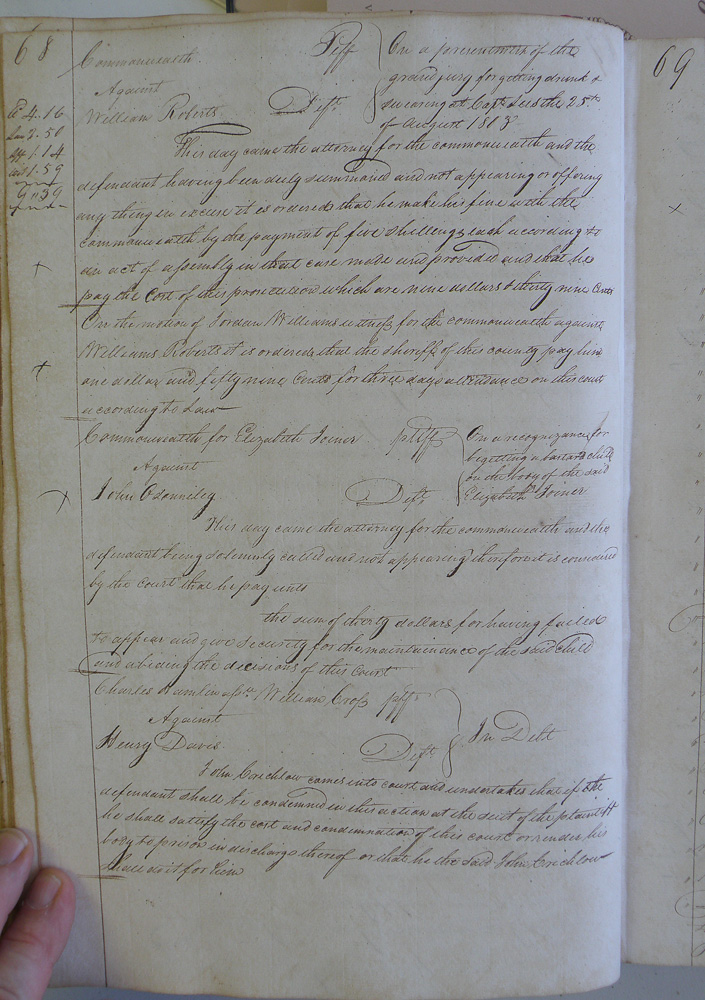 68
Commonwealth Ptff
Against
William Roberts Dift
On a presentment of the
grand jury for getting drunk &
swearing at Capt Lees the 25th
of August 1808
4.16
2.50
1.14
1.59
9.39
This day came the attorney for the commonwealth and the
defendant having been duly summoned and not appearing or offering
any thing in excuse it is ordered that he make his fine with the
commonwealth by the payment of five shillings each according to
an act of assembly in that case made and provided and that he
pay the Cost of this prosecution which are nine dollars & thirty nine Cents
On the motion of Jordan Williams witness for the commonwealth against
Williams Roberts it is ordered that the sheriff of this county pay him
one dollar and fifty nine Cents for three days attendance on this court
according to Law
Commonwealth for Elizabeth Joiner ptiff
Against
John Deft
On a recognizance for
begetting a bastard child
on the body of the said
Elizabeth Joiner
This day came the attorney for the commonwealth and the
defendant being solemnly called and not appearing therefore it is considered
by the court that he pay unto
the sum of thirty dollars for having failed
to appear and give security for the maintainance of the said child
and abiding the decisions of this Court
Charles Hamlin assee William Cross ptff
Against
Henry Davis Deft
In Debt
John Crichlow comes into court and undertakes that if the
defendant shall be condemned in this action at the suit of the plaintiff
he shall satisfy the cost and condemnation of this court or render his
body to prison in discharge thereof or that he the said John Crichlow
shall do it for him
69